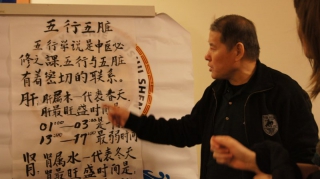 五行五脏
五行学说是中医必
修之課。五行与五脏
有着密切的联系。
肝:肝属木—代表春天
肝最旺盛时间是
01:00—03:00
13:00—17:00最弱时间
肾:肾属水—代表冬天
肾最旺盛时间是